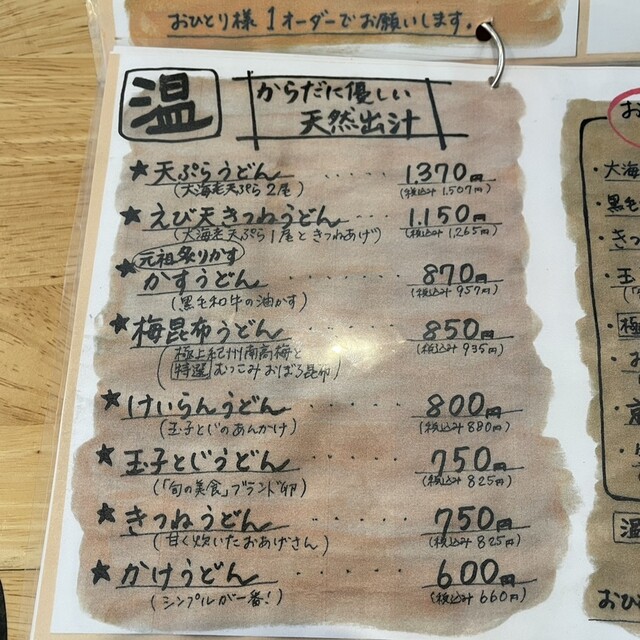 おひとり様1オーダーでお願いします。
温
からだに優しい
天然出汁
★天ぷらうどん ····· 1.370円
(大海老天ぷら2尾) (税込み1,507円)
★えび天きつねうどん ··· 1.150円
(大海老天ぷら1尾ときつねあげ) (税込み1,265円)
元祖炙りかす
★かすうどん ······ 870円
(黒毛和牛の油かす) (税込み957円)
★梅昆布うどん ····· 850円
(極上紀州南高梅と (税込み935円)
特選むつこみおぼろ昆布)
★けいらんうどん ····· 800円
(玉子とじのあんかけ) (税込み880円)
★玉子とじうどん ····· 750円
(「旬の美食」ブランド卵) (税込み825円)
★きつねうどん ······ 750円
(甘く炊いたおあげさん) (税込み825円)
★かけうどん ······ 600円
(シンプルが一番!) (税込み660円)
お
・大海
・黒毛
・きつ
・玉
・温
おひ